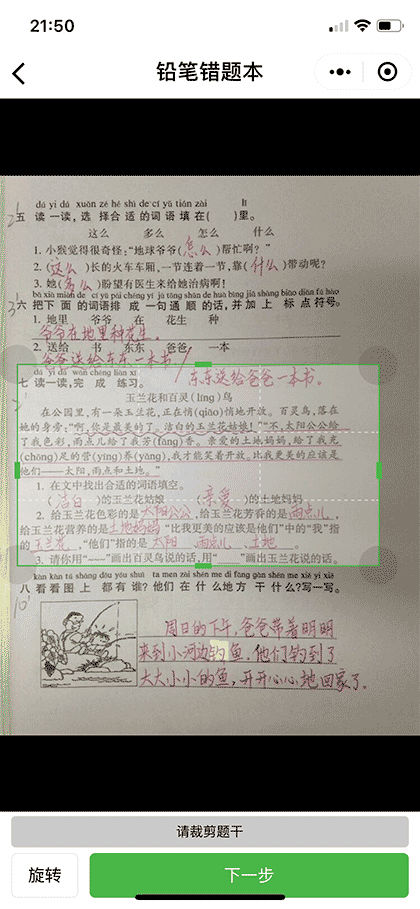 21:50
铅笔错题本
dú yi dú xuǎn zé hé shì de cí yǔ tián zài lǐ
五 读一读,选择合适的词语填在( )里。
这么 多么 怎么 什么
1. 小猴觉得很奇怪:“地球爷爷(怎么)帮忙啊?”
2. (这么)长的火车车厢,一节连着一节,靠(什么)带动呢?
3. 她(多么)盼望有医生来给她治病啊!
bǎ xià miàn de cí yǔ pái chéng yí jù tōng shùn de huà bìng jiā shàng biāo diǎn fú hào
六 把下面的词语排成一句通顺的话,并加上标点符号。
1. 地里 爷爷 在 花生 种
爷爷在地里种花生。
2. 送给 书 东东 爸爸 一本
爸爸送给东东一本书
/东东送给爸爸一本书。
dú yi dú wán chéng liàn xí
七 读一读,完成练习。
玉兰花和百灵(líng)鸟
在公园里,有一朵玉兰花,正在悄(qiāo)悄地开放。百灵鸟,落在
她的身旁:“啊,你是最美的了。洁白的玉兰花姑娘!”“不,太阳公公给
了我色彩,雨点儿给了我芳(fāng)香。亲爱的土地妈妈,给了我充
(chōng)足的营(yíng)养(yǎng),我才能笑着开放。比我更美的应该是
他们——太阳,雨点和土地。”
1. 在文中找出合适的词语填空。
(洁白)的玉兰花姑娘 (亲爱)的土地妈妈
2. 给玉兰花色彩的是太阳公公,给玉兰花芳香的是雨点儿,
给玉兰花营养的是土地妈妈“比我更美的应该是他们”中的“我”指
的玉兰花,“他们”指的是 太阳 雨点儿、土地。
3. 请你用“~~”画出百灵鸟说的话,用“——”画出玉兰花说的话。
kàn kàn tú shàng dōu yǒu shuí tā men zài shén me dì fāng gàn shén me xiě yì xiě
八 看看图上都有谁?他们在什么地方干什么?写一写。
周日的下午,爸爸带着明明
来到小河边钓鱼,他们钓到了
大大小小的鱼,开开心心地回家了。
请裁剪题干
旋转
下一步